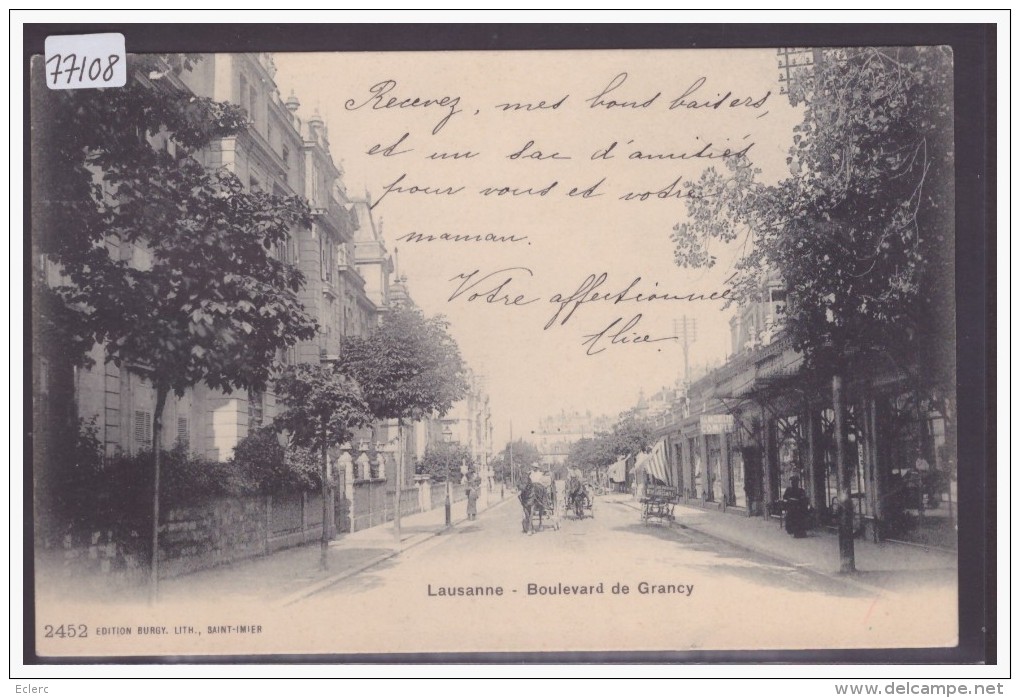 77108
Recevez, mes bons baisers,
et un sac d'amitiés
pour vous et votre
maman.
Votre affectionnée
Alice
Lausanne - Boulevard de Grancy
2452 EDITION BURGY. LITH., SAINT-IMIER
Eclerc
www.delcampe.net